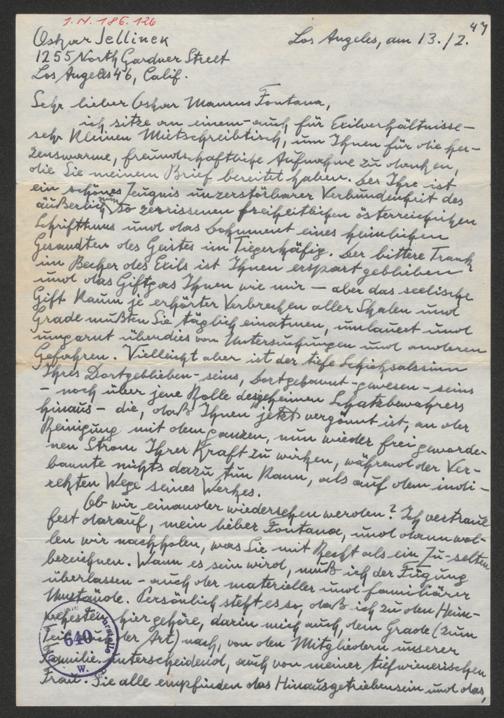 I.N. 186.126
47
Oskar Jellinek
Los Angeles, am 13./2.
1255 North Gardner Street
Los Angeles 46, Calif.
Sehr lieber Oskar Maurus Fontana,
ich sitze an einem – auch für Exilverhältnisse –
sehr kleinen Mietschreibtisch, um Ihnen für die her-
zenswarme, freundschaftliche Aufnahme zu danken,
die Sie meinem Brief bereitet haben. Der Ihre ist
ein schönes Zeugnis unzerstörbarer Verbundenheit des
äußerlich so zerrissenen freiheitlichen österreichischen
Schrifttums und das Dokument eines heimlichen
Gesandten des Geistes im Tigerkäfig. Der bittere Trank
im Becher des Exils ist Ihnen erspart geblieben
und das Giftgas Ihnen wie mir – aber das seelische
Gift kaum je erhörter Verbrechen aller Skalen und
Grade mußten Sie täglich einatmen, umlauert und
umgarnt überdies von Untersuchungen und anderen
Gefahren. Vielleicht aber ist der tiefe Schicksalssinn
Ihres Dortgeblieben-seins, Dortgebannt-gewesen-seins
– noch über jene Rolle des geheimen Schatzbewahrers
hinaus – die, daß Ihnen jetzt vergönnt ist, an der
Reinigung mit dem ganzen, nun wieder freigeworde-
nen Strom Ihrer Kraft zu wirken, während der Ver-
bannte nichts dazu tun kann, als auf dem indi-
rekten Wege seines Werkes.
Ob wir einander wiedersehen werden? Ich vertraue
fest darauf, mein lieber Fontana, und dann wol-
len wir nachholen, was Sie mit Recht als ein Zu-selten
bezeichnen. Wann es sein wird, muß ich der Fügung
überlassen – auch der materieller und familiärer
Umstände. Persönlich steht es so, daß ich zu den Heim-
wehesten hier gehöre, darin mich auch, dem Grade (zum
Teil der Art) nach, von den Mitgliedern unserer
Familie unterscheidend, auch von meiner tief wienerischen
Frau. Sie alle empfinden das Hinausgetriebensein und das,
640
W.